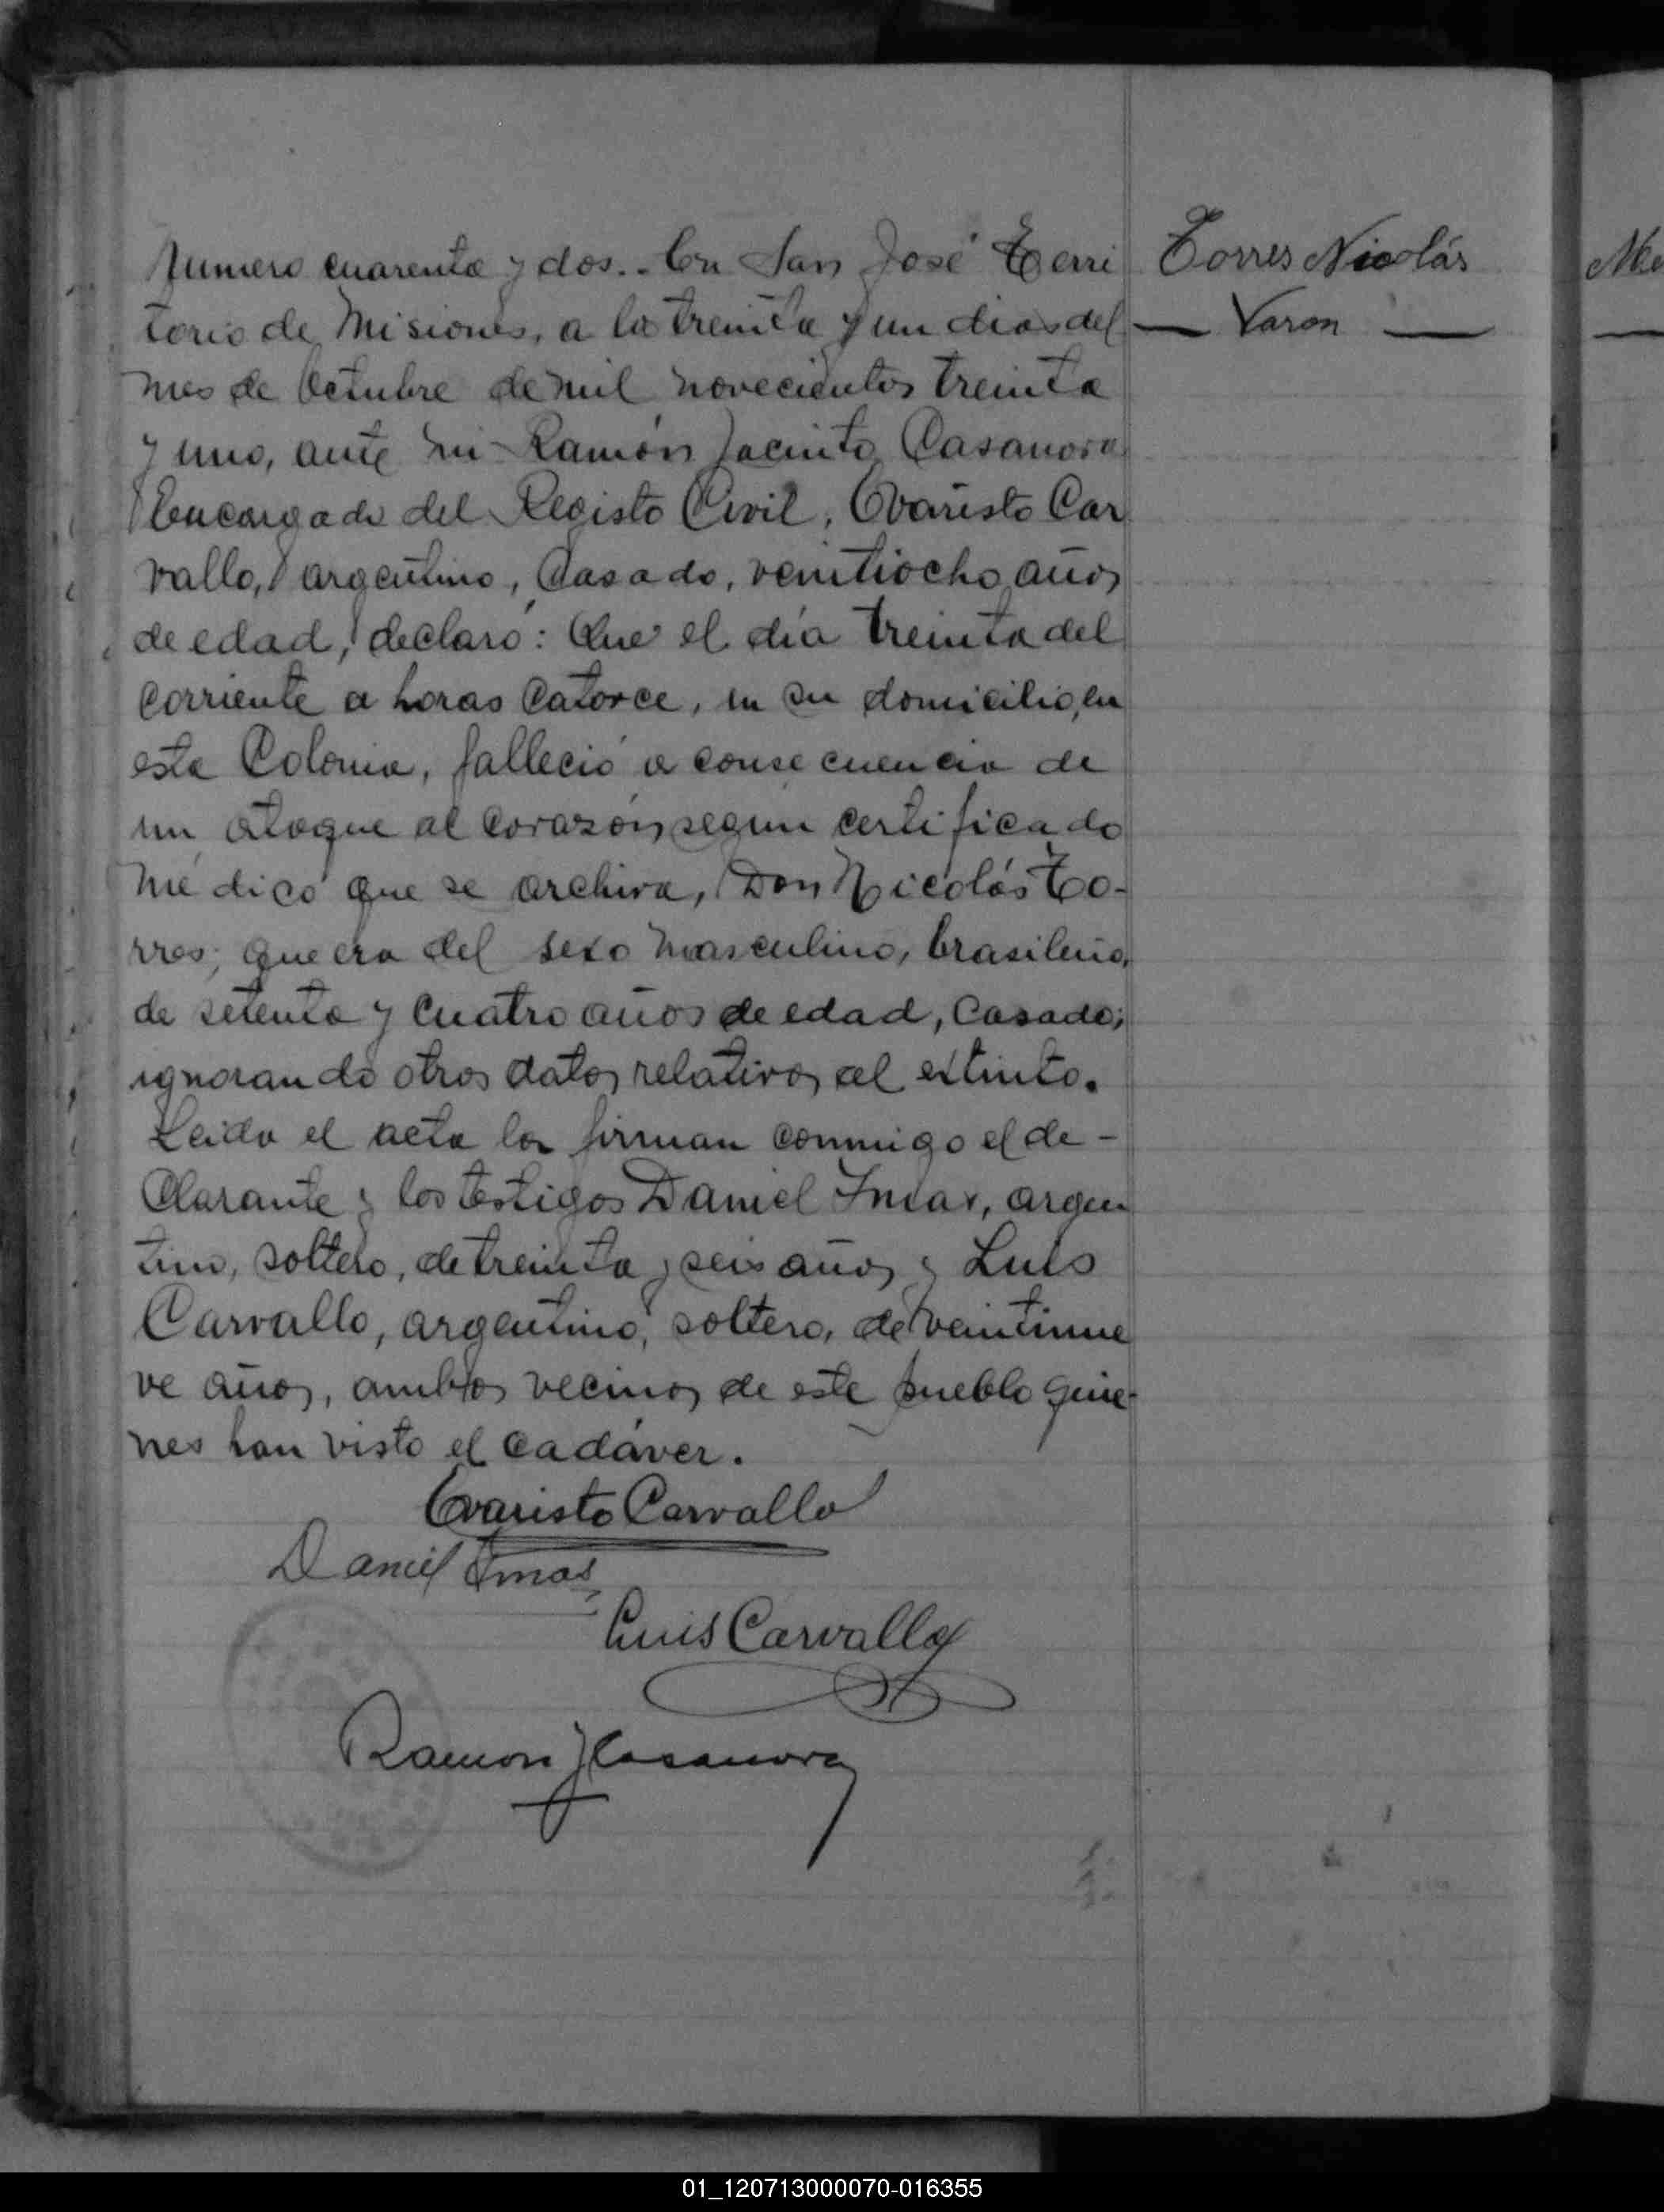 Numero cuarenta y dos.. En San José Terri
Torres Nicolás
torio de Misiones, a los treinta y un dias del
Varon
mes de Octubre de mil novecientos treinta
y uno, ante mi Ramón Jacinto Casanova
Encargado del Registo Civil, Evaristo Car
vallo, argentino, Casado, veintiocho años
de edad, declaró: Que el día treinta del
corriente a horas catorce, en su domicilio, en
esta Colonia, falleció a consecuencia de
un ataque al corazón, según certificado
médico que se archiva, Don Nicolás To-
rres; que era del sexo masculino, brasileño,
de setenta y cuatro años de edad, casado;
ignorando otros datos relativos al extinto.
Leida el acta la firman conmigo el de-
clarante y los testigos Daniel, argen
tino, soltero, de treinta y seis años y Luis
Carvallo, argentino, soltero, de veintinue
ve años, ambos vecinos de este pueblo quie-
nes han visto el cadáver.
Evaristo Carvallo
Daniel
Luis Carvallo
Ramon J Casanova
01_120713000070-016355